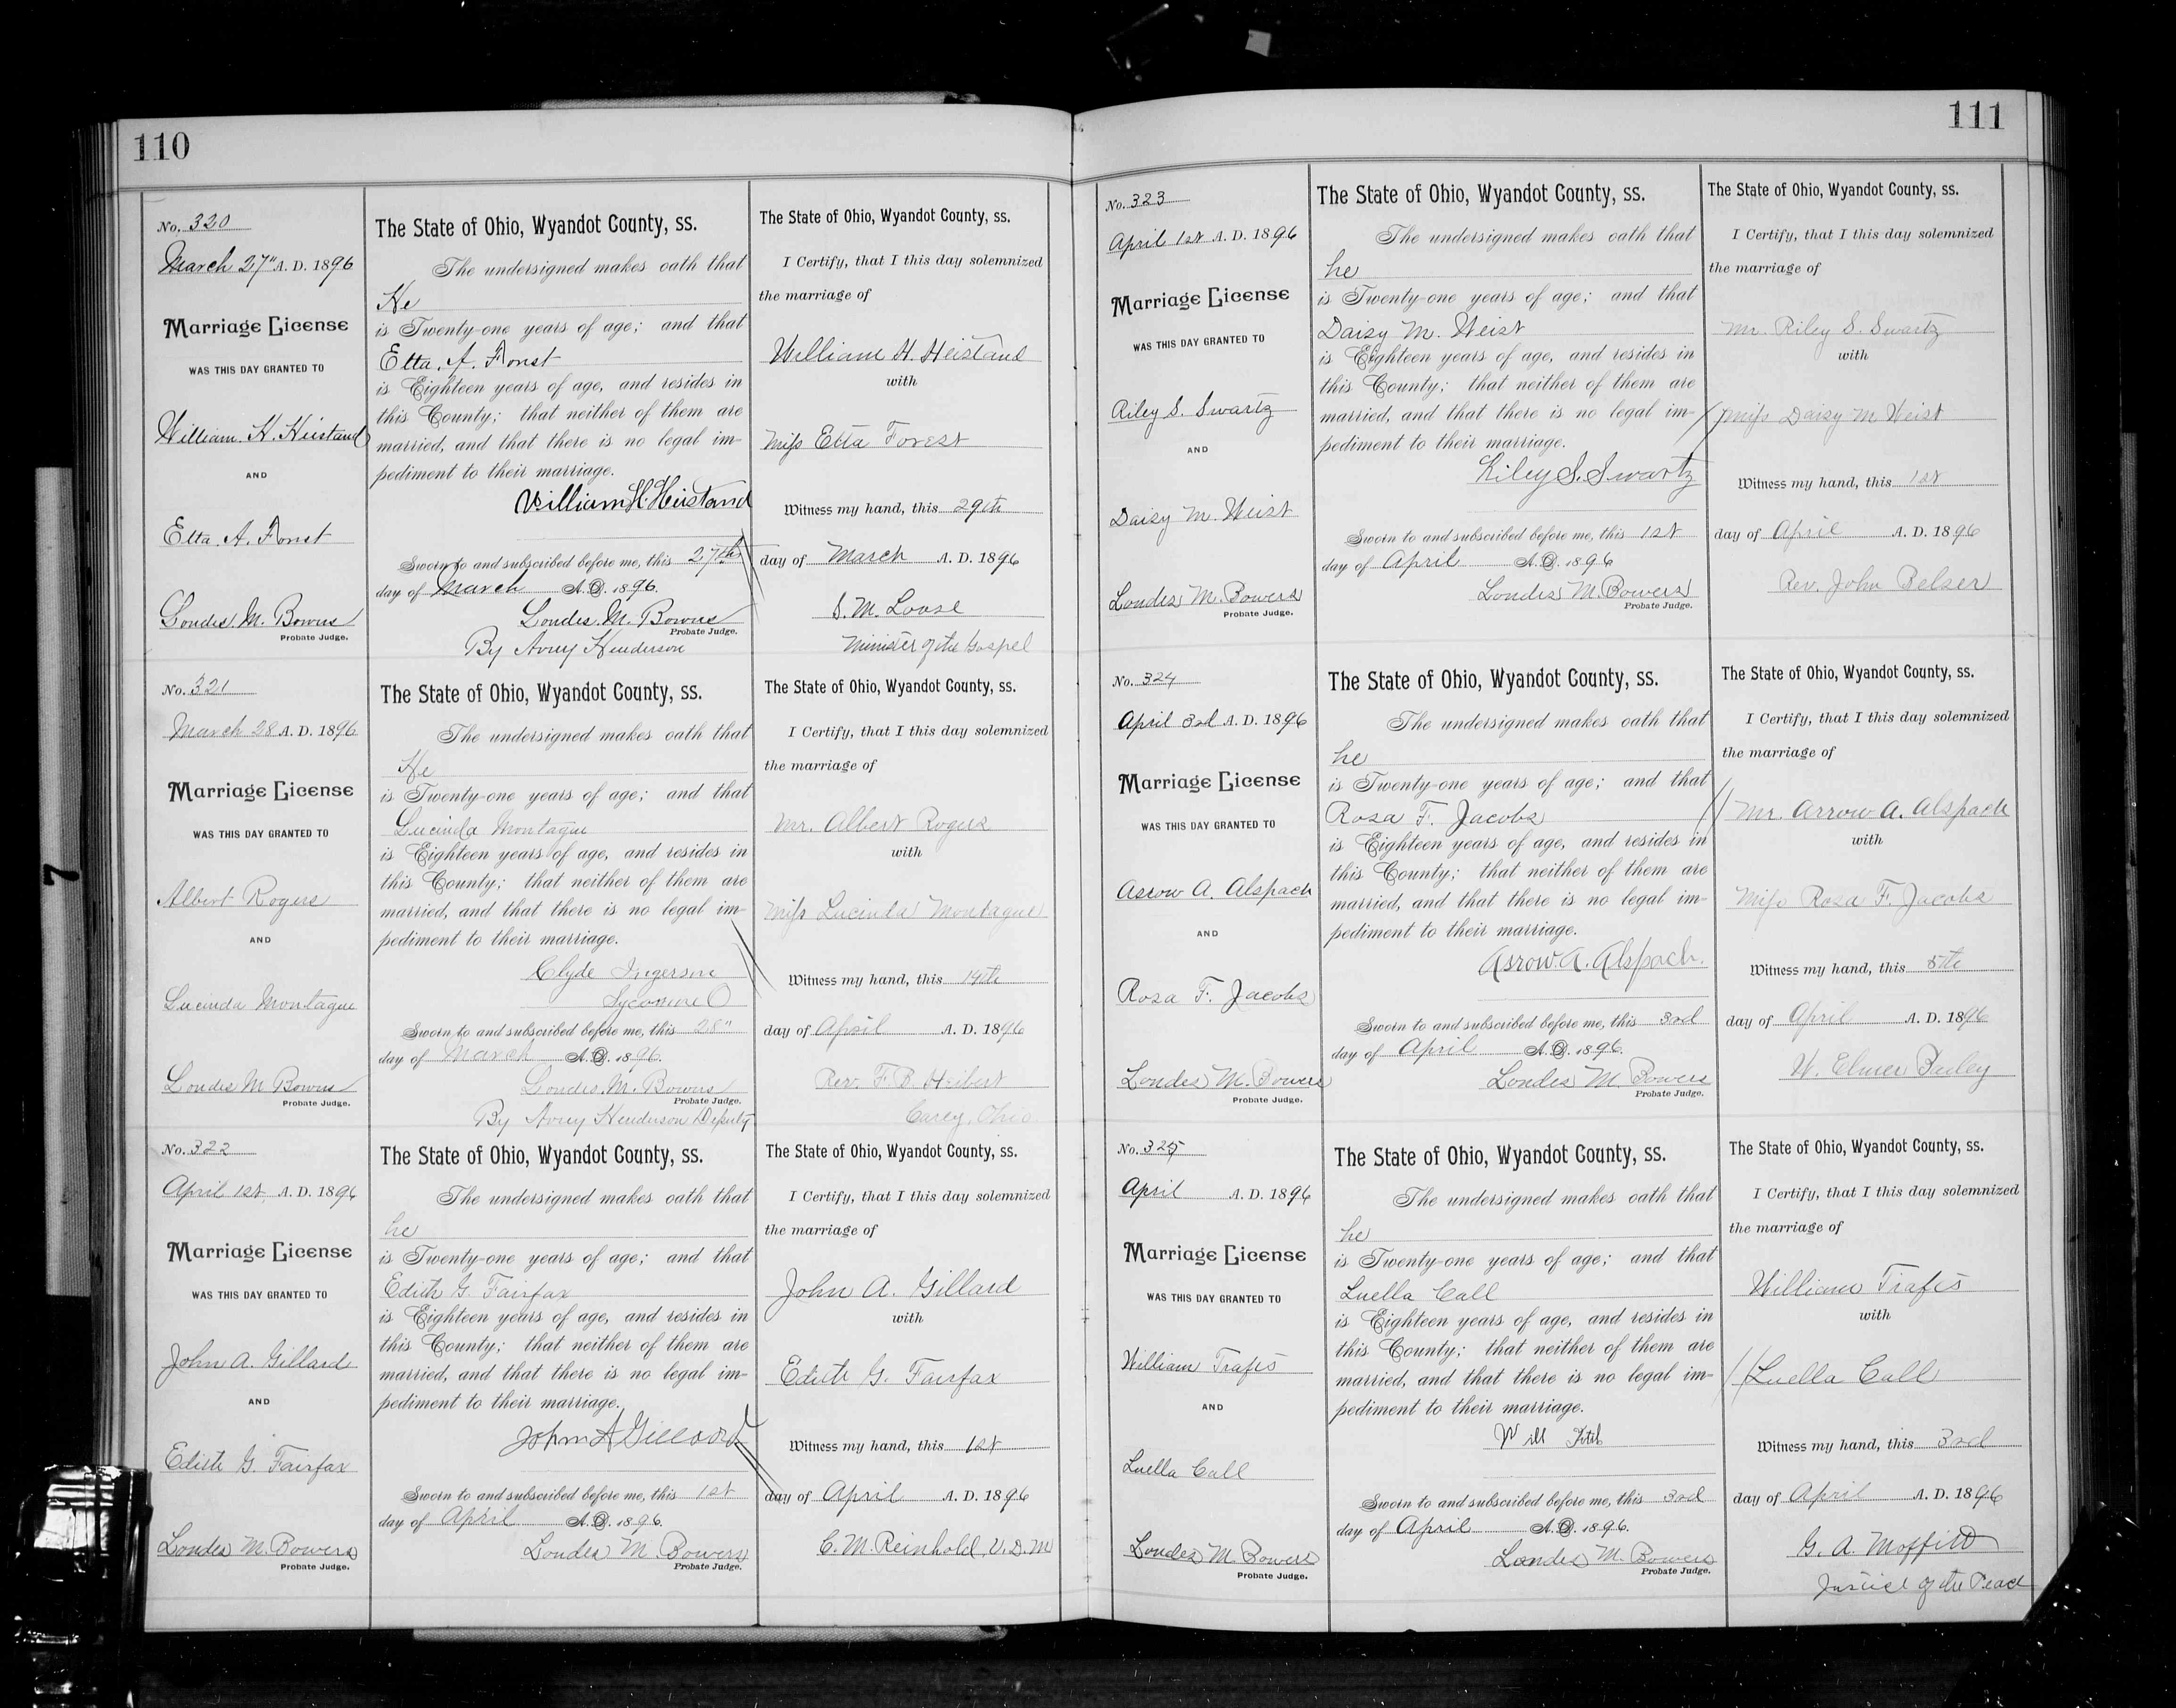 110
No. 320
March 27" A. D. 1896
Marriage License
WAS THIS DAY GRANTED TO
William. H. Heistand
AND
Etta. A. Forest
Londes. M. Bowers
Probate Judge.
The State of Ohio, Wyandot County, ss.
The undersigned makes oath that
He
is Twenty-one years of age; and that
Etta. A. Forest
is Eighteen years of age, and resides in
this County; that neither of them are
married, and that there is no legal im-
pediment to their marriage.
William H. Heistand
Sworn to and subscribed before me, this 27th
day of March A. D. 1896.
Londes. M. Bowers
Probate Judge.
By Avery Henderson
The State of Ohio, Wyandot County, ss.
I Certify, that I this day solemnized
the marriage of
William H. Heistand
with
Miss Etta Forest
Witness my hand, this 29th
day of March A. D. 1896
S. M. Loose
Minister of the Gospel
No. 321
March 28 A. D. 1896
Marriage License
WAS THIS DAY GRANTED TO
Albert Rogers
AND
Lucinda Montague
Londes M Bowers
Probate Judge.
The State of Ohio, Wyandot County, ss.
The undersigned makes oath that
He
is Twenty-one years of age; and that
Lucinda Montague
is Eighteen years of age, and resides in
this County; that neither of them are
married, and that there is no legal im-
pediment to their marriage.
Clyde Ingerson
Sycamore O
Sworn to and subscribed before me, this 28"
day of March A. D. 1896.
Londes. M. Bowers
Probate Judge.
By Avery Henderson Deputy
The State of Ohio, Wyandot County, ss.
I Certify, that I this day solemnized
the marriage of
Mr. Albert Rogers
with
Miss Lucinda Montague
Witness my hand, this 14th
day of April A. D. 1896
Rev. F. B. Heibert
Carey, Ohio.
No. 322
April 1st, A. D. 1896
Marriage License
WAS THIS DAY GRANTED TO
John A. Gillard
AND
Edith G. Fairfax
Londes M. Bowers
Probate Judge.
The State of Ohio, Wyandot County, ss.
The undersigned makes oath that
he
is Twenty-one years of age; and that
Edith G. Fairfax
is Eighteen years of age, and resides in
this County; that neither of them are
married, and that there is no legal im-
pediment to their marriage.
John A Gillard
Sworn to and subscribed before me, this 1st
day of April A. D. 1896.
Londes M. Bowers
Probate Judge.
The State of Ohio, Wyandot County, ss.
I Certify, that I this day solemnized
the marriage of
John A. Gillard
with
Edith G. Fairfax
Witness my hand, this 1st
day of April A. D. 1896
C. M. Reinhold, V. D. M
111
No. 323
April 1st A. D. 1896
Marriage License
WAS THIS DAY GRANTED TO
Riley S. Swartz
AND
Daisy M. Weist
Londes M. Bowers
Probate Judge.
The State of Ohio, Wyandot County, ss.
The undersigned makes oath that
he
is Twenty-one years of age; and that
Daisy M. Weist
is Eighteen years of age, and resides in
this County; that neither of them are
married, and that there is no legal im-
pediment to their marriage.
Riley S. Swartz
Sworn to and subscribed before me, this 1st
day of April A. D. 1896
Londes M. Bowers
Probate Judge.
The State of Ohio, Wyandot County, ss.
I Certify, that I this day solemnized
the marriage of
Mr. Riley S. Swartz
with
Miss Daisy M Weist
Witness my hand, this 1st
day of April A. D. 1896
Rev. John Belser
No. 324
April 3rd A. D. 1896
Marriage License
WAS THIS DAY GRANTED TO
Arrow A. Alspach
AND
Rosa F. Jacobs
Londes M. Bowers
Probate Judge.
The State of Ohio, Wyandot County, ss.
The undersigned makes oath that
he
is Twenty-one years of age; and that
Rosa F. Jacobs
is Eighteen years of age, and resides in
this County; that neither of them are
married, and that there is no legal im-
pediment to their marriage.
Arrow. A. Alspach.
Sworn to and subscribed before me, this 3rd
day of April A. D. 1896.
Londes M. Bowers
Probate Judge.
The State of Ohio, Wyandot County, ss.
I Certify, that I this day solemnized
the marriage of
Mr. Arrow A. Alspach
with
Miss Rosa F. Jacobs
Witness my hand, this 5th
day of April A. D. 1896
W. Elmer Bailey
No. 325
April A. D. 1896
Marriage License
WAS THIS DAY GRANTED TO
William Trafis
AND
Luella Call
Londes M. Bowers
Probate Judge.
The State of Ohio, Wyandot County, ss.
The undersigned makes oath that
he
is Twenty-one years of age; and that
Luella Call
is Eighteen years of age, and resides in
this County; that neither of them are
married, and that there is no legal im-
pediment to their marriage.
Will
Sworn to and subscribed before me, this 3rd
day of April A. D. 1896.
Londes M. Bowers
Probate Judge.
The State of Ohio, Wyandot County, ss.
I Certify, that I this day solemnized
the marriage of
William Trafis
with
Luella Call
Witness my hand, this 3rd
day of April A. D. 1896
G. A. Moffitt
Justice of the Peace
7